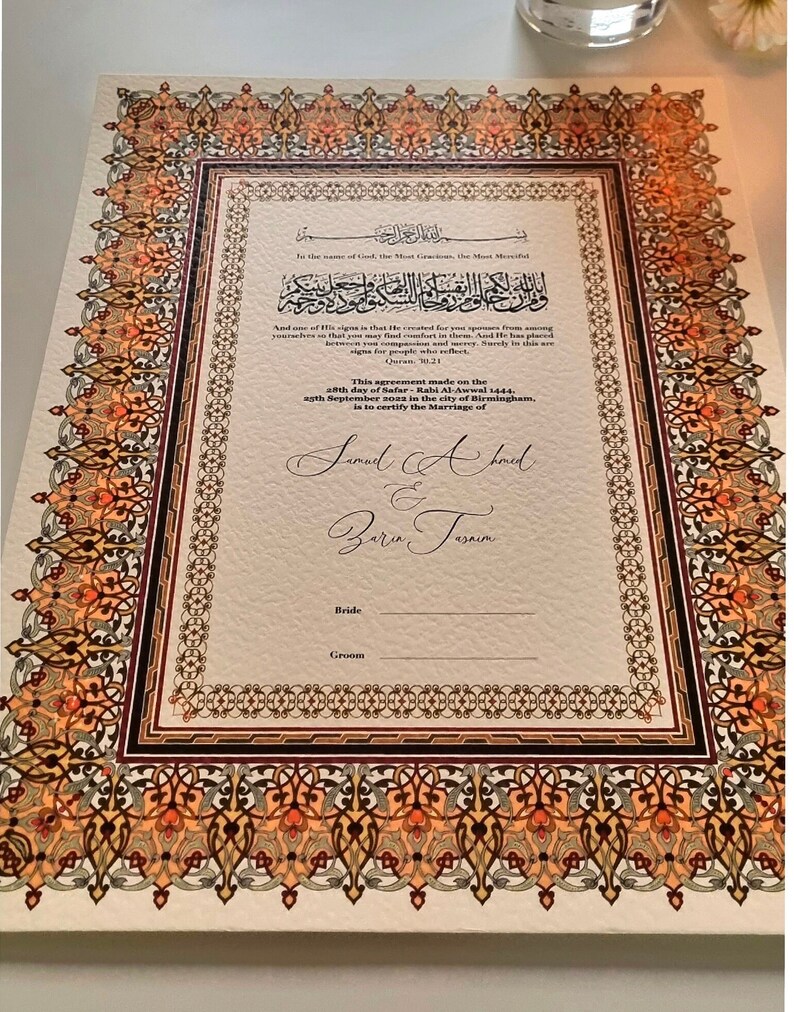 بسم الله الرحمن الرحيم
In the name of God, the Most Gracious, the Most Merciful
ومن آياته أن خلق لكم من أنفسكم أزواجا لتسكنوا إليها وجعل بينكم مودة ورحمة
And one of His signs is that He created for you spouses from among
yourselves so that you may find comfort in them. And He has placed
between you compassion and mercy. Surely in this are
signs for people who reflect.
Quran: 30.21
This agreement made on the
28th day of Safar - Rabi Al-Awwal 1444,
25th September 2022 in the city of Birmingham,
is to certify the Marriage of
Samuel Ahmed
&
Zarin Tasnim
Bride
Groom